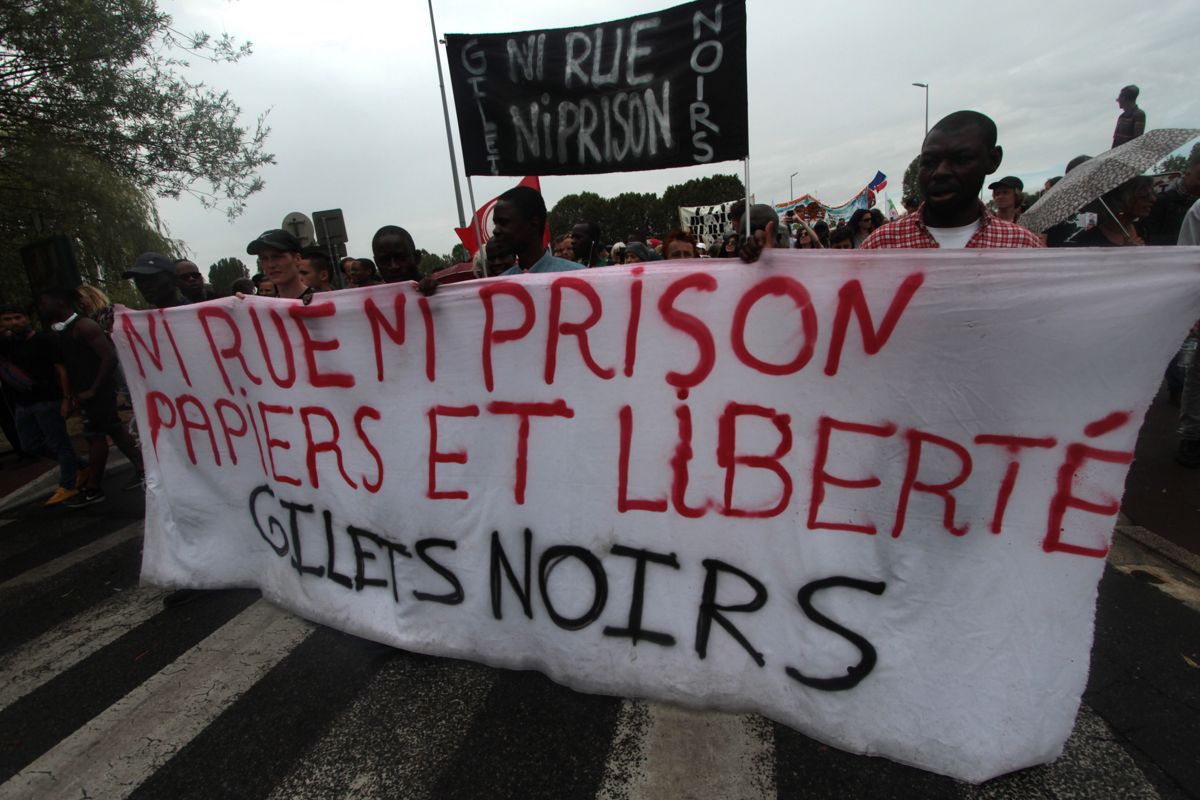 GILET
NI RUE
NI PRISON
NOIRS
NI RUE NI PRISON
PAPIERS ET LIBERTÉ
GILETS NOIRS